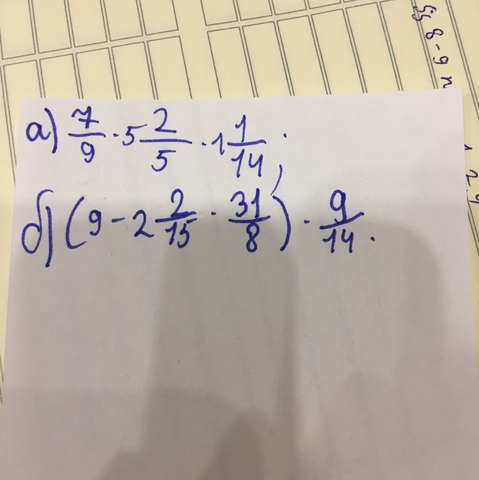 а) 7/9 · 5 2/5 · 1 1/14;
б) (9 - 2 2/15 · 31/8) · 9/14.